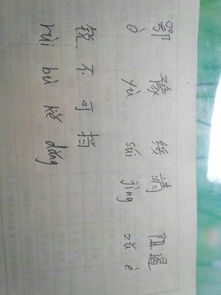 鄂 豫 绥靖 阻遏
e yù suí jìng zǔ è
锐不可挡
ruì bù kě dǎng